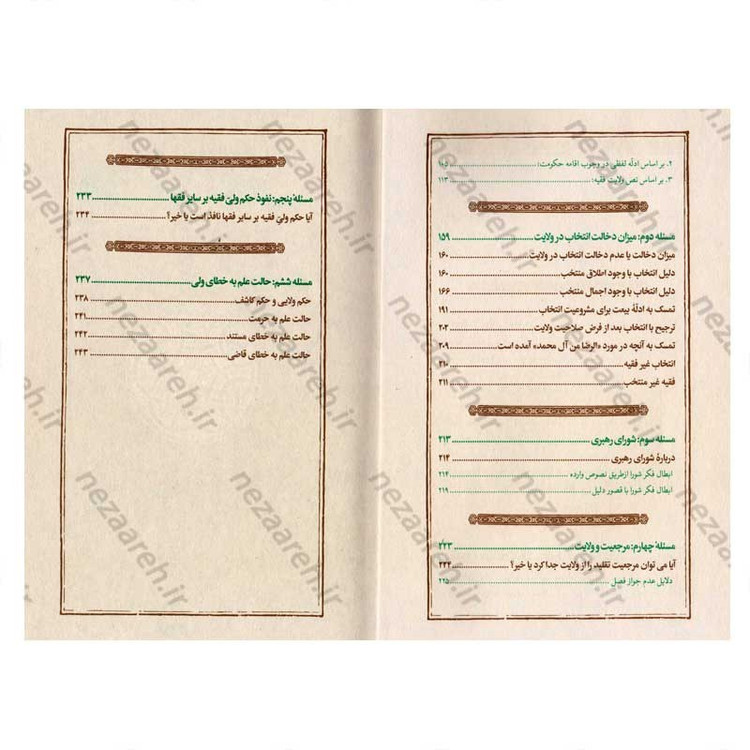 ۲. بر اساس ادلّه لفظی در وجوب اقامه حکومت: ۱۰۵
۳. بر اساس نص ولایت فقیه: ۱۱۳
مسئله دوم: میزان دخالت انتخاب در ولایت ۱۵۹
میزان دخالت یا عدم دخالت انتخاب در ولایت ۱۶۰
دلیل انتخاب با وجود اطلاق منتخب ۱۶۰
دلیل انتخاب با وجود اجمال منتخب ۱۶۶
تمسک به ادلّۀ بیعت برای مشروعیت انتخاب ۱۹۱
ترجیح با انتخاب بعد از فرض صلاحیت ولایت ۲۰۲
تمسک به آنچه در مورد «الرضا من آل محمد» آمده است ۲۰۹
انتخاب غیر فقیه ۲۱۰
فقیه غیر منتخب ۲۱۱
مسئله سوم: شورای رهبری ۲۱۳
دربارۀ شورای رهبری ۲۱۴
ابطال فکر شورا ازطریق نصوص وارده ۲۱۴
ابطال فکر شورا با قصور دلیل ۲۱۹
مسئلۀ چهارم: مرجعیت و ولایت ۲۲۳
آیا می توان مرجعیت تقلید را از ولایت جدا کرد یا خیر؟ ۲۲۴
دلایل عدم جواز فصل ۲۲۵
مسئلۀ پنجم: نفوذ حکم ولیّ فقیه بر سایر فقها ۲۳۳
آیا حکم ولیّ فقیه بر سایر فقها نافذ است یا خیر؟ ۲۳۴
مسئله ششم: حالت علم به خطای ولی ۲۳۷
حکم ولایی و حکم کاشف ۲۳۸
حالت علم به حرمت ۲۴۱
حالت علم به خطای مستند ۲۴۲
حالت علم به خطای قاضی ۲۴۳
nezaareh.ir